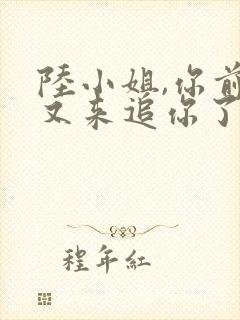 陸小姐,你前
又来追你了
程年紅